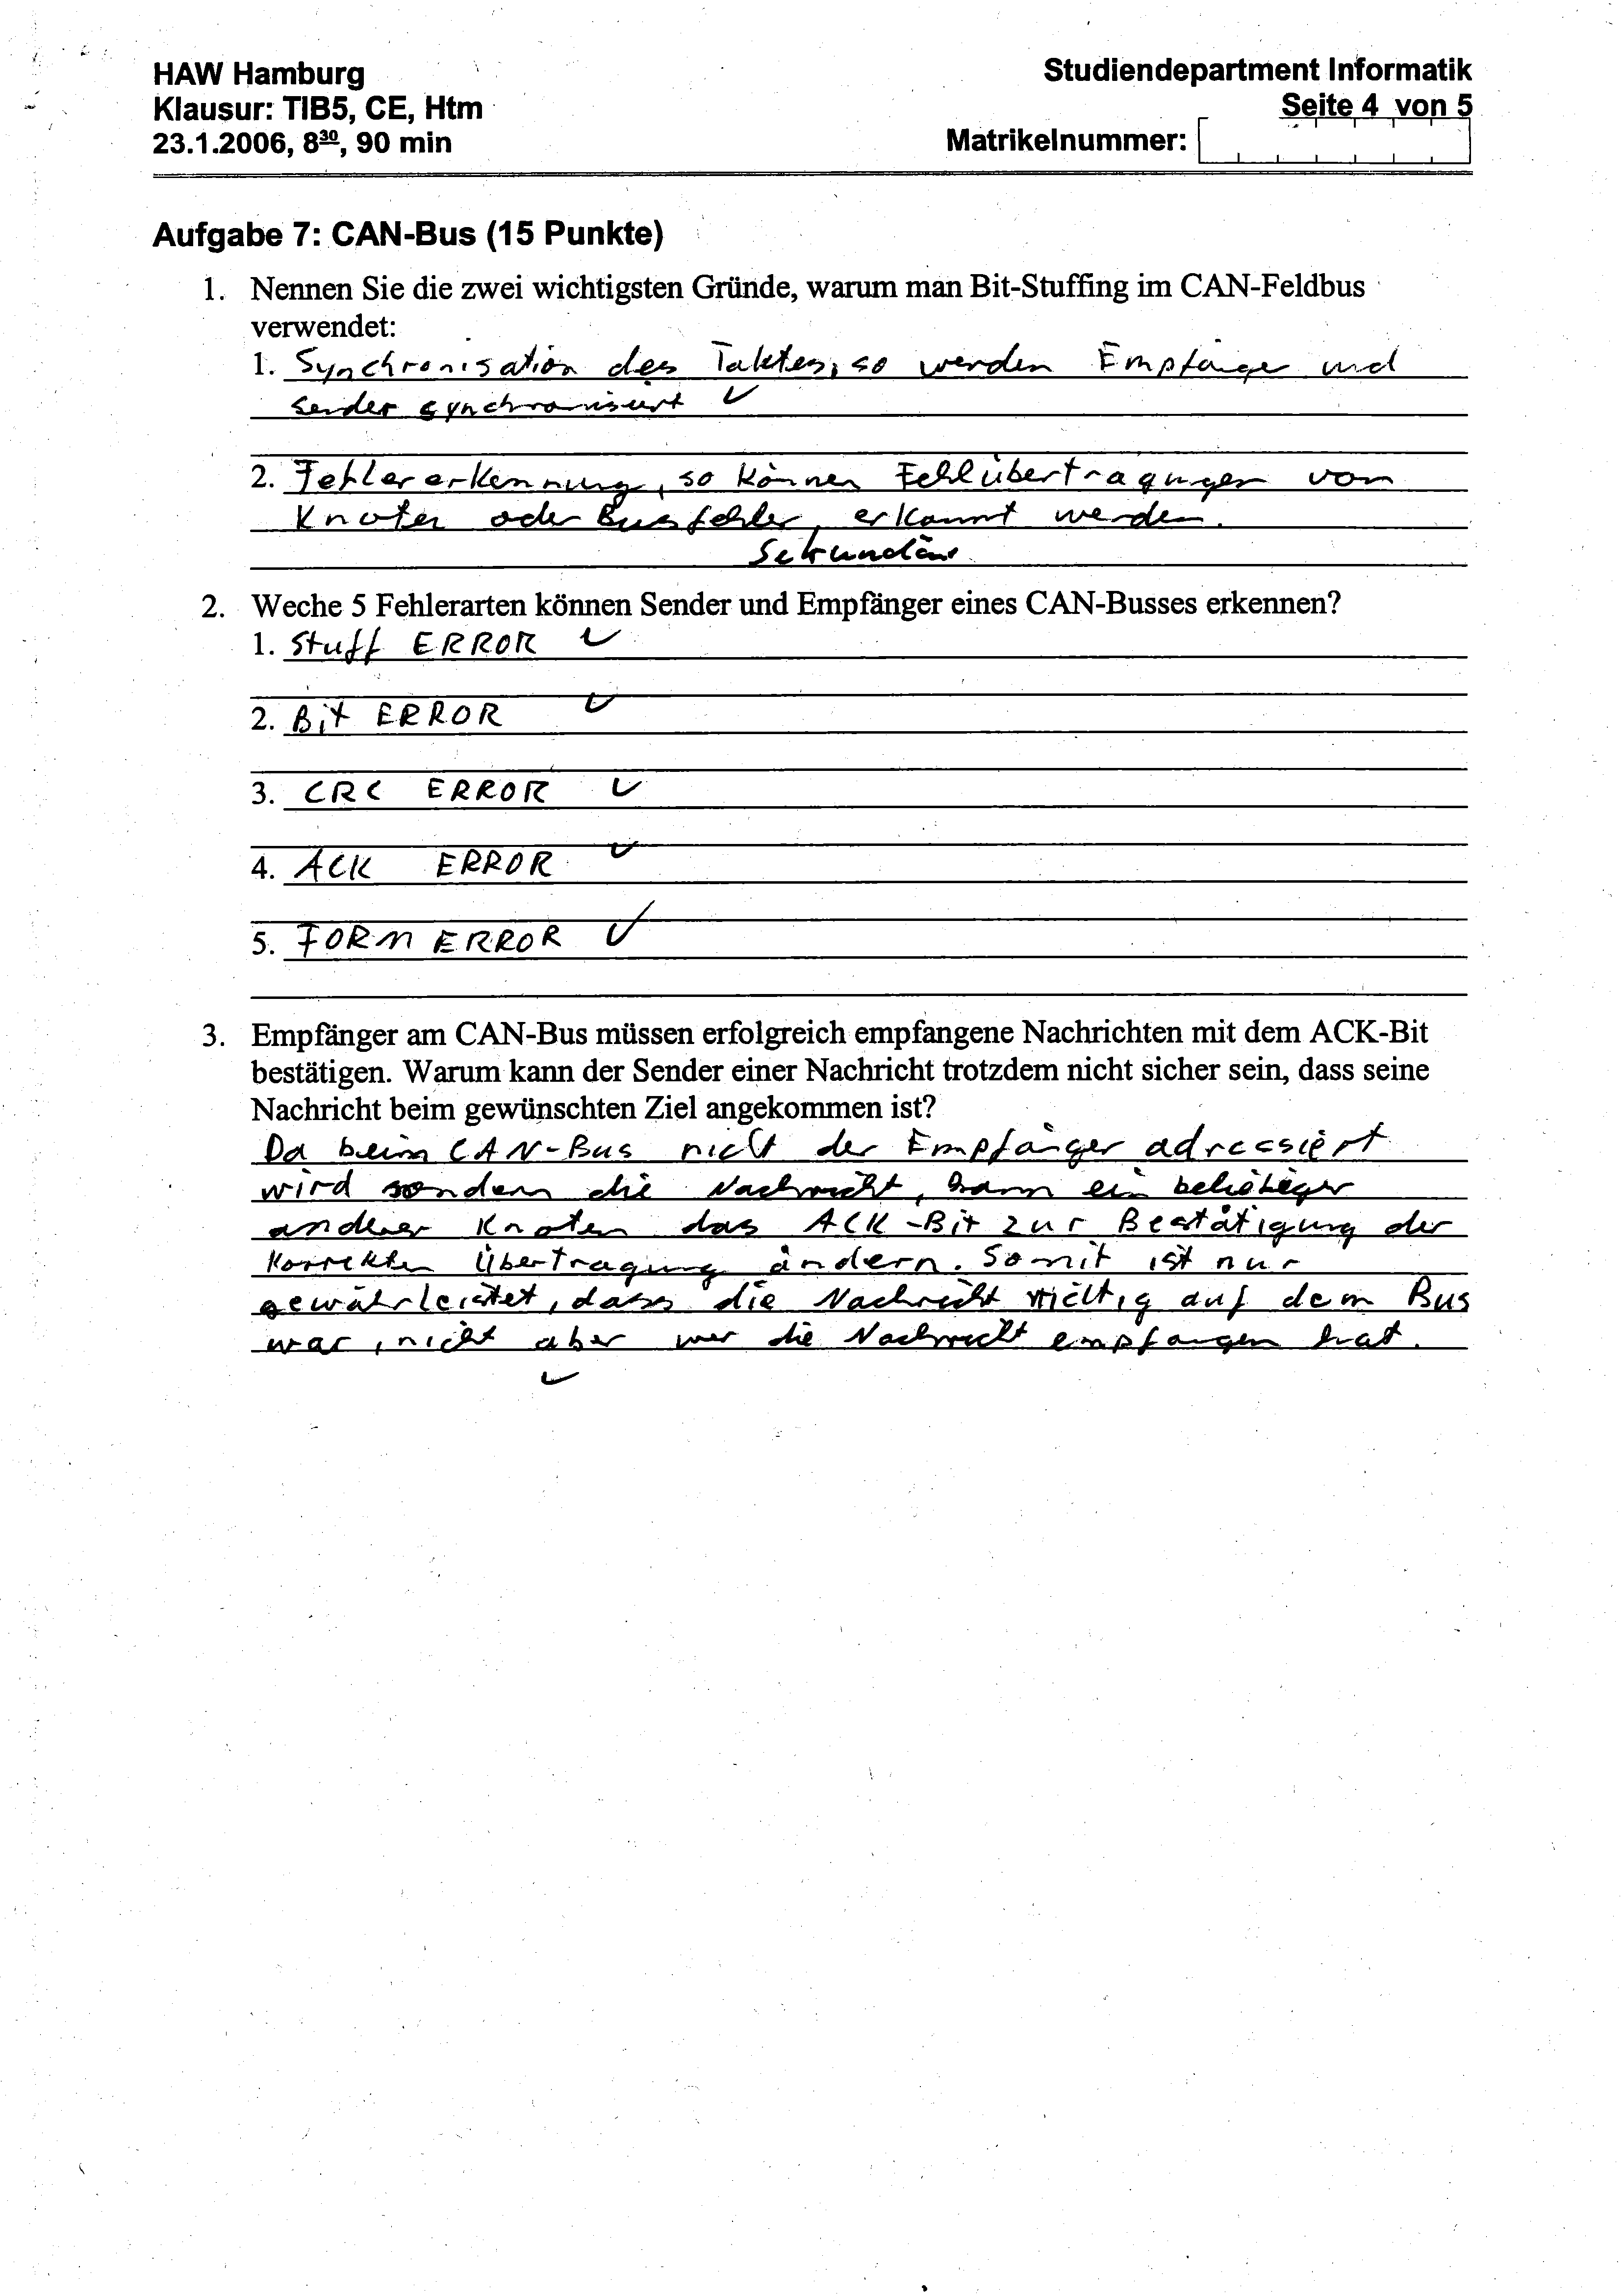 HAW Hamburg
Klausur: TIB5, CE, Htm
23.1.2006, 8³⁰, 90 min
Studiendepartment Informatik
Seite 4 von 5
Matrikelnummer:
Aufgabe 7: CAN-Bus (15 Punkte)
1. Nennen Sie die zwei wichtigsten Gründe, warum man Bit-Stuffing im CAN-Feldbus
verwendet:
1. Synchronisation des Taktes, so werden Empfänger und
Sender synchronisiert ✓
2. Fehlererkennung, so können Fehlübertragungen von
Knoten oder Busfehler erkannt werden.
Sekundär
2. Weche 5 Fehlerarten können Sender und Empfänger eines CAN-Busses erkennen?
1. Stuff ERROR ✓
2. Bit ERROR ✓
3. CRC ERROR ✓
4. ACK ERROR ✓
5. FORM ERROR ✓
3. Empfänger am CAN-Bus müssen erfolgreich empfangene Nachrichten mit dem ACK-Bit
bestätigen. Warum kann der Sender einer Nachricht trotzdem nicht sicher sein, dass seine
Nachricht beim gewünschten Ziel angekommen ist?
Da beim CAN-Bus nicht der Empfänger adressiert
wird sondern die Nachricht, kann ein beliebiger
anderer Knoten das ACK-Bit zur Bestätigung der
korrekten Übertragung ändern. Somit ist nur
gewährleistet, dass die Nachricht richtig auf dem Bus
war, nicht aber wer die Nachricht empfangen hat.
✓